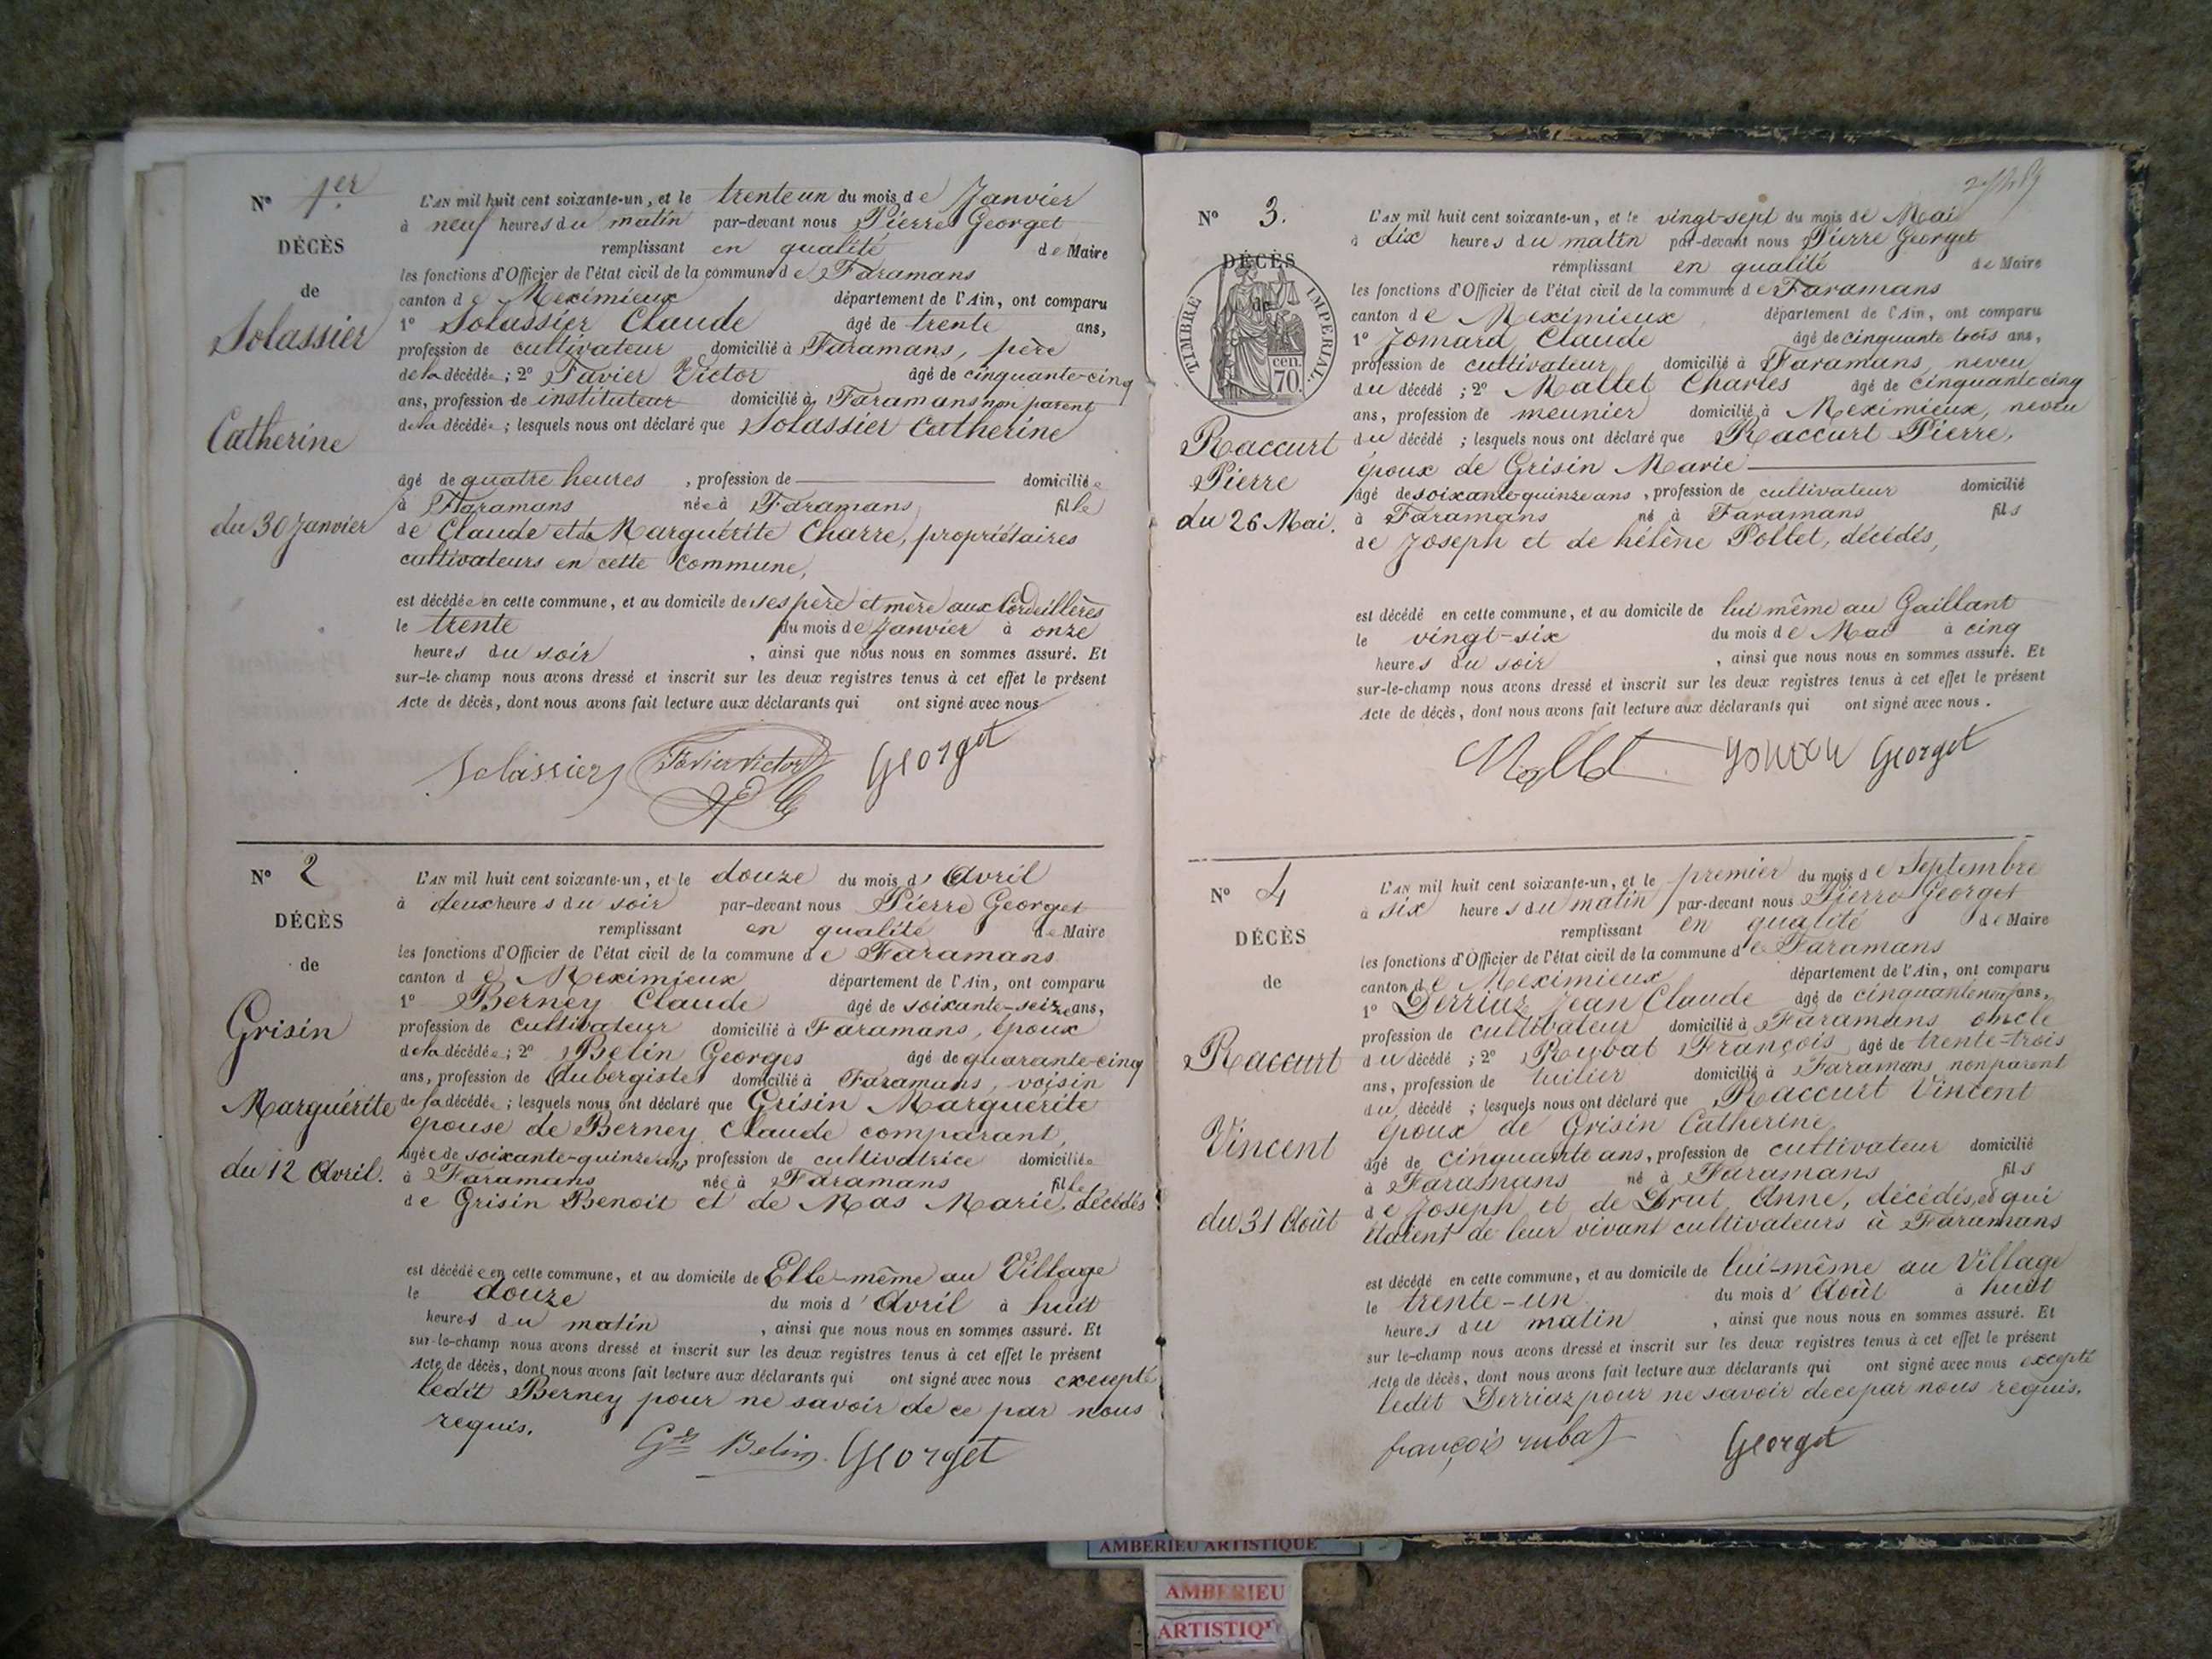 N° 1er
DÉCÈS
de
Solassier
Catherine
du 30 Janvier
L'AN mil huit cent soixante-un, et le trente un du mois de Janvier
à neuf heures du matin par-devant nous Pierre Georget
remplissant en qualité de Maire
les fonctions d'Officier de l'état civil de la commune de Faramans
canton de Meximieux département de l'Ain, ont comparu
1° Solassier Claude âgé de trente ans,
profession de cultivateur domicilié à Faramans, père
de la décédée ; 2° Favier Victor âgé de cinquante-cinq
ans, profession de instituteur domicilié à Faramans non parent
de la décédée ; lesquels nous ont déclaré que Solassier Catherine
âgé de quatre heures , profession de domiciliée
à Faramans née à Faramans fille
de Claude et de Marguérite Charre, propriétaires
cultivateurs en cette commune,
est décédée en cette commune, et au domicile de ses père et mère aux Cordeillères
le trente du mois de Janvier à onze
heures du soir , ainsi que nous nous en sommes assuré. Et
sur-le-champ nous avons dressé et inscrit sur les deux registres tenus à cet effet le présent
Acte de décès, dont nous avons fait lecture aux déclarants qui ont signé avec nous
Solassier Favier Victor Georget
N° 2
DÉCÈS
de
Grisin
Marguérite
du 12 Avril.
L'AN mil huit cent soixante-un, et le douze du mois d'Avril
à deux heures du soir par-devant nous Pierre Georget
remplissant en qualité de Maire
les fonctions d'Officier de l'état civil de la commune de Faramans
canton de Meximieux département de l'Ain, ont comparu
1° Berney Claude âgé de soixante-seize ans,
profession de cultivateur domicilié à Faramans, époux
de la décédée ; 2° Belin Georges âgé de quarante-cinq
ans, profession de Aubergiste domicilié à Faramans, voisin
de la décédée ; lesquels nous ont déclaré que Grisin Marguérite
épouse de Berney Claude comparant,
âgée de soixante-quinze ans, profession de cultivatrice domiciliée
à Faramans née à Faramans fille
de Grisin Benoit et de Mas Marie, décédés
est décédée en cette commune, et au domicile de Elle-même au Village
le douze du mois d'Avril à huit
heures du matin , ainsi que nous nous en sommes assuré. Et
sur-le-champ nous avons dressé et inscrit sur les deux registres tenus à cet effet le présent
Acte de décès, dont nous avons fait lecture aux déclarants qui ont signé avec nous excepté
ledit Berney pour ne savoir de ce par nous
requis.
Ges Belin Georget
N° 3.
DÉCÈS
de
TIMBRE IMPÉRIAL.
70 cen.
Raccurt
Pierre
du 26 Mai.
L'AN mil huit cent soixante-un, et le vingt-sept du mois de Mai
à dix heures du matin par-devant nous Pierre Georget
remplissant en qualité de Maire
les fonctions d'Officier de l'état civil de la commune de Faramans
canton de Meximieux département de l'Ain, ont comparu
1° Jomard Claude âgé de cinquante trois ans,
profession de cultivateur domicilié à Faramans, neveu
du décédé ; 2° Mallet Charles âgé de cinquante cinq
ans, profession de meunier domicilié à Meximieux, neveu
du décédé ; lesquels nous ont déclaré que Raccurt Pierre,
époux de Grisin Marie
âgé de soixante-quinze ans , profession de cultivateur domicilié
à Faramans né à Faramans fils
de Joseph et de hélène Pollet, décédés,
est décédé en cette commune, et au domicile de lui même au Gaillant
le vingt-six du mois de Mai à cinq
heures du soir , ainsi que nous nous en sommes assuré. Et
sur-le-champ nous avons dressé et inscrit sur les deux registres tenus à cet effet le présent
Acte de décès, dont nous avons fait lecture aux déclarants qui ont signé avec nous .
Mallet Georget
N° 4
DÉCÈS
de
Raccurt
Vincent
du 31 Août
L'AN mil huit cent soixante-un, et le premier du mois de Septembre
à six heures du matin par-devant nous Pierre Georget
remplissant en qualité de Maire
les fonctions d'Officier de l'état civil de la commune de Faramans
canton de Meximieux département de l'Ain, ont comparu
1° Derriaz Jean Claude âgé de cinquante neuf ans,
profession de cultivateur domicilié à Faramans oncle
du décédé ; 2° Rubat François âgé de trente-trois
ans, profession de tuilier domicilié à Faramans non parent
du décédé ; lesquels nous ont déclaré que Raccurt Vincent
époux de Grisin Catherine
âgé de cinquante ans, profession de cultivateur domicilié
à Faramans né à Faramans fils
de Joseph et de Drut Anne, décédés, et qui
étaient de leur vivant cultivateurs à Faramans
est décédé en cette commune, et au domicile de lui-même au Village
le trente-un du mois d'Août à huit
heures du matin , ainsi que nous nous en sommes assuré. Et
sur le-champ nous avons dressé et inscrit sur les deux registres tenus à cet effet le présent
Acte de décès, dont nous avons fait lecture aux déclarants qui ont signé avec nous excepté
ledit Derriaz pour ne savoir de ce par nous requis.
françois rubat Georget
AMBERIEU ARTISTIQUE
AMBERIEU
ARTISTIQU